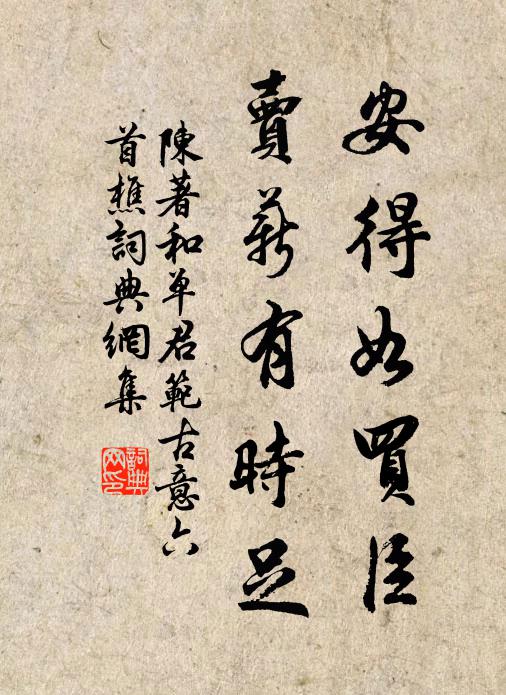 安得如買臣
賣薪有時足
陳著和單君範古意六
首樵詞典網集
詞典網印